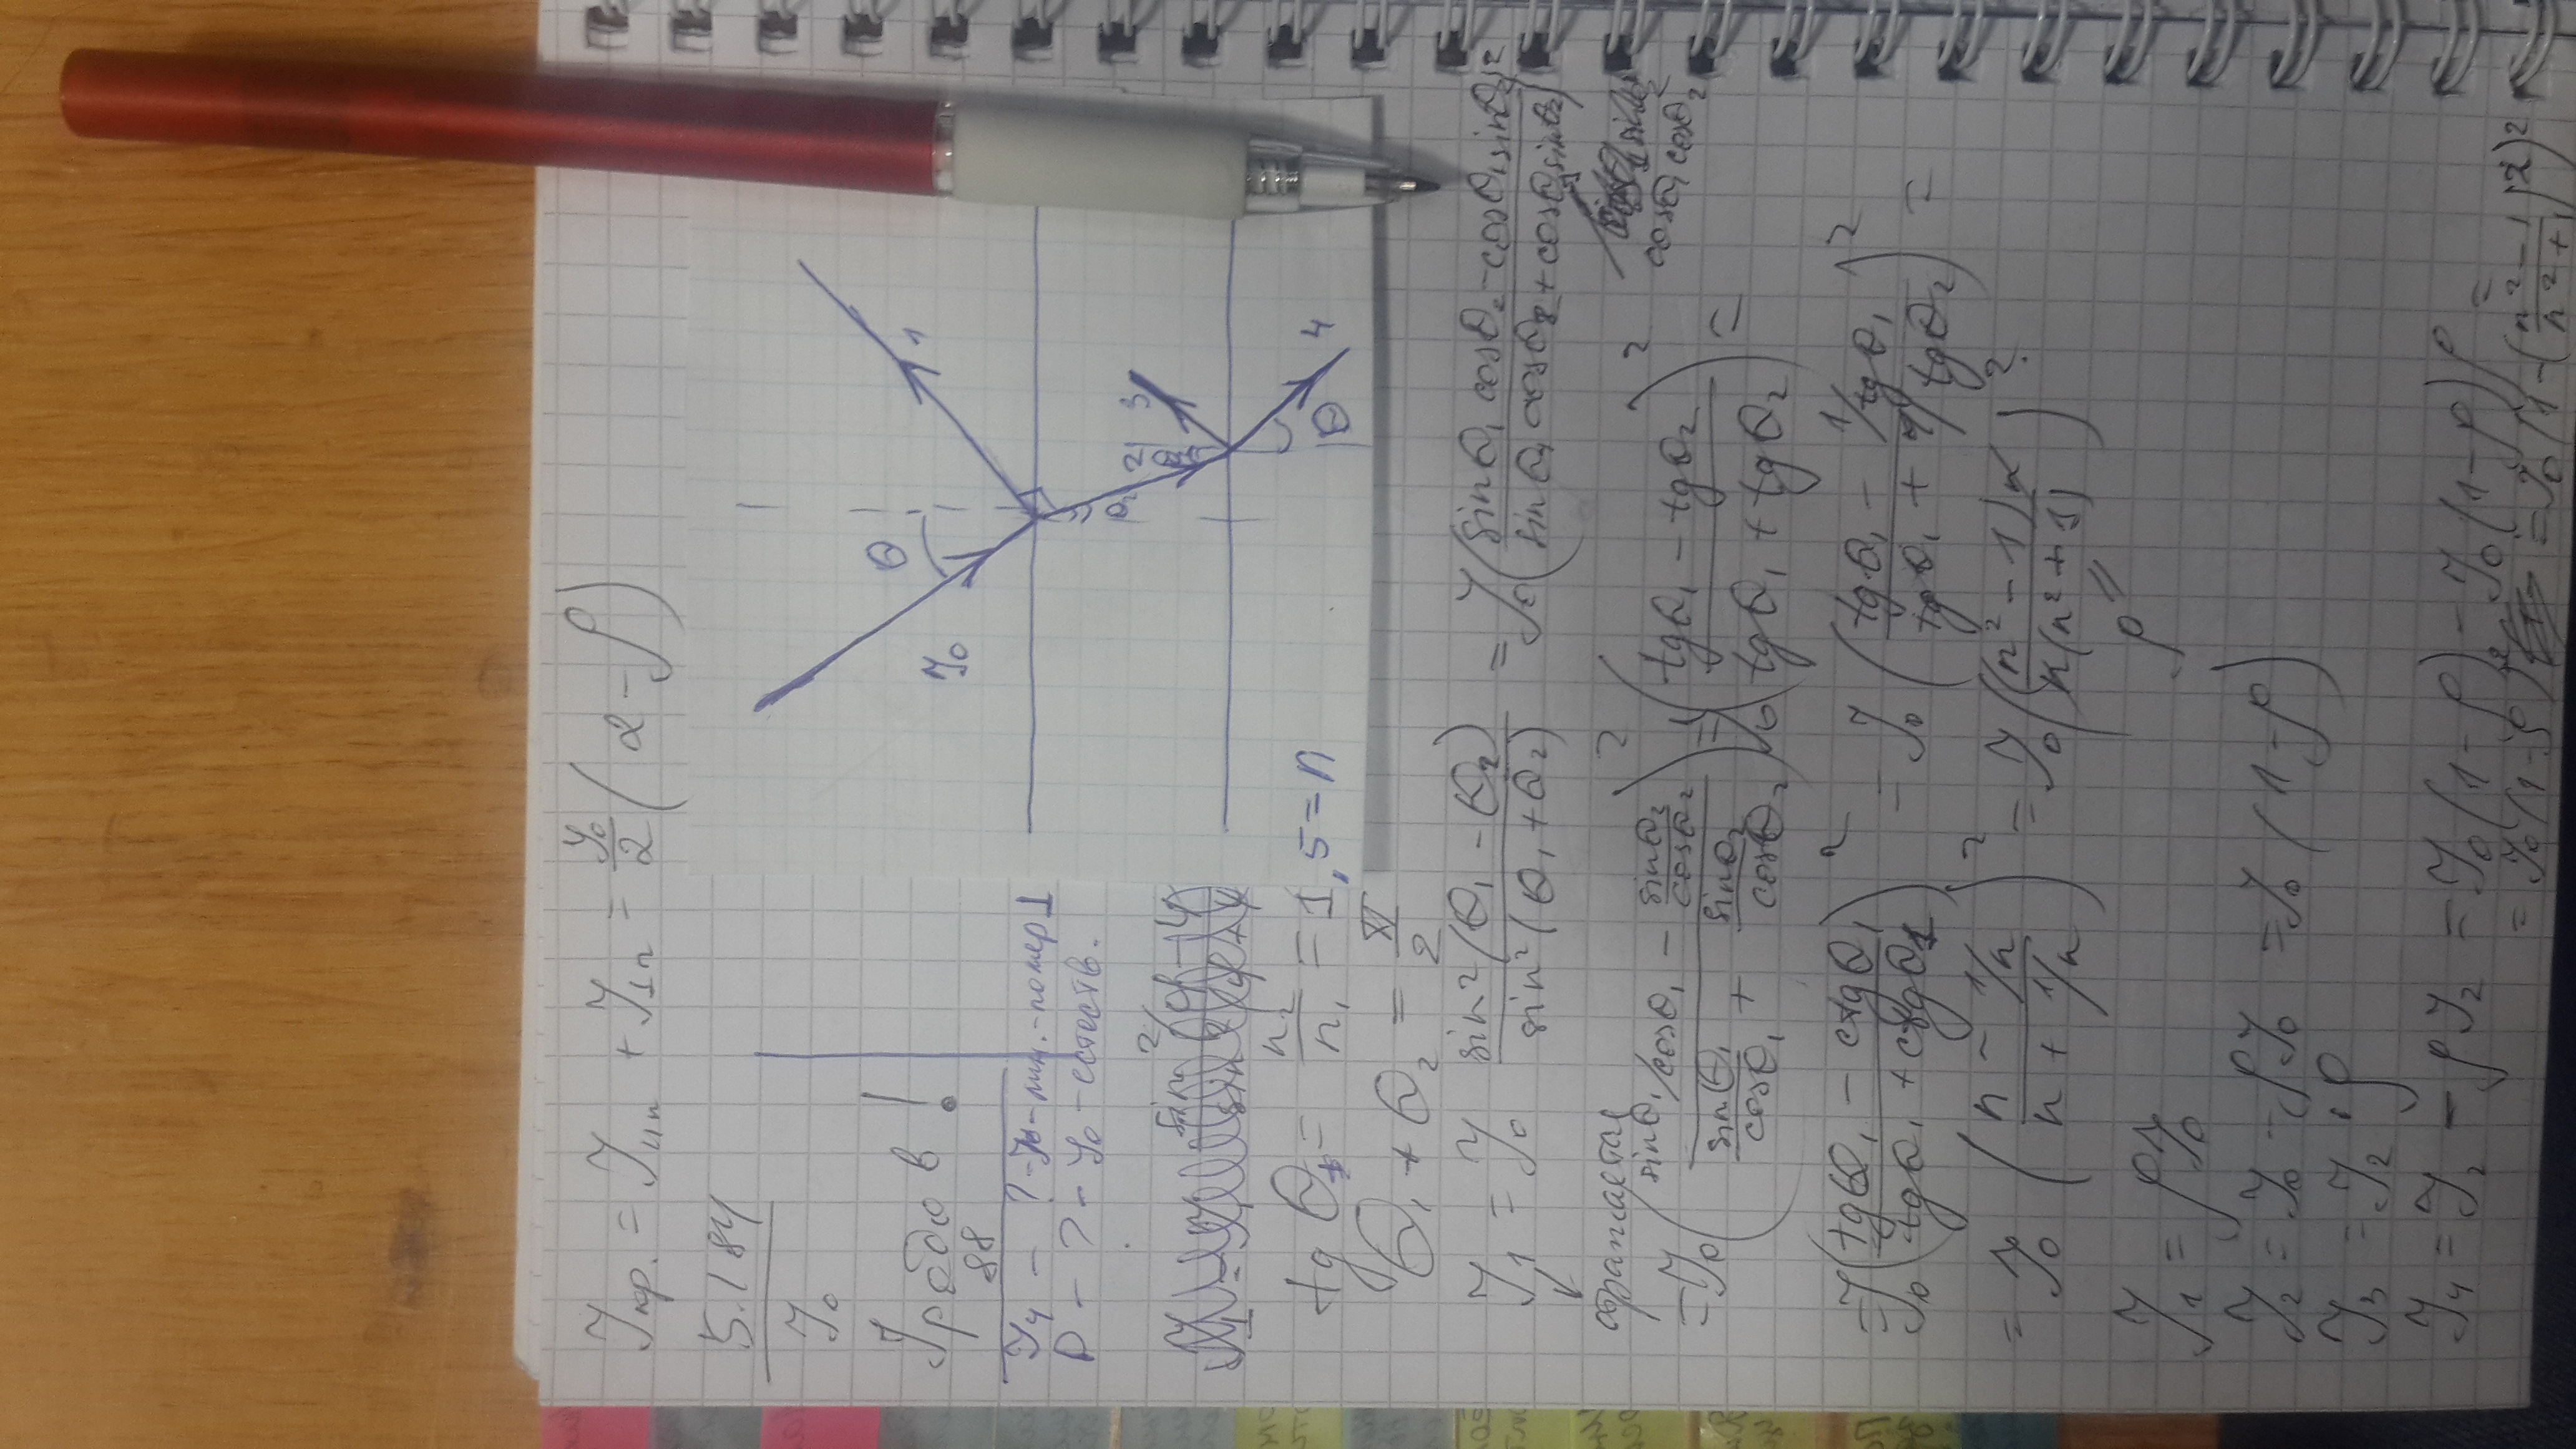 J пр. = J ııп + J ⊥п = J₀/2 (2 − ρ)
5.184
J₀
Иродов !
88
J₄ − ? − J₀ − лин. − поляр ⊥
P − ? − J₀ − естеств.
θ
J₀
1
θ₂
2
3
θ
4
tg θ₁ = n₂/n₁ = 1,5 = n
θ₁ + θ₂ = π/2
J₁ = J₀ sin²(θ₁ − θ₂)/sin²(θ₁ + θ₂) = J₀ ((sinθ₁ cosθ₂ − cosθ₁ sinθ₂)/(sinθ₁ cosθ₂ + cosθ₁ sinθ₂))²
отражается
cosθ₁ cosθ₂
= J₀ ((sinθ₁/cosθ₁ − sinθ₂/cosθ₂)/(sinθ₁/cosθ₁ + sinθ₂/cosθ₂))² = J₀ ((tgθ₁ − tgθ₂)/(tgθ₁ + tgθ₂))² =
= J₀ ((tgθ₁ − ctgθ₁)/(tgθ₁ + ctgθ₁))² = J₀ ((tgθ₁ − 1/tgθ₁)/(tgθ₁ + 1/tgθ₂))² =
= J₀ ((n − 1/n)/(n + 1/n))² = J₀ ((n² − 1)n/n(n² + 1))²
ρ
J₁ = ρJ₀
J₂ = J₀ − ρJ₀ = J₀ (1 − ρ)
J₃ = J₂ · ρ
J₄ = J₂ − ρJ₂ = J₀(1 − ρ) − J₀(1 − ρ)ρ =
= J₀(1 − ρ)² = J₀(1 − ((n² − 1)/(n² + 1))²)²